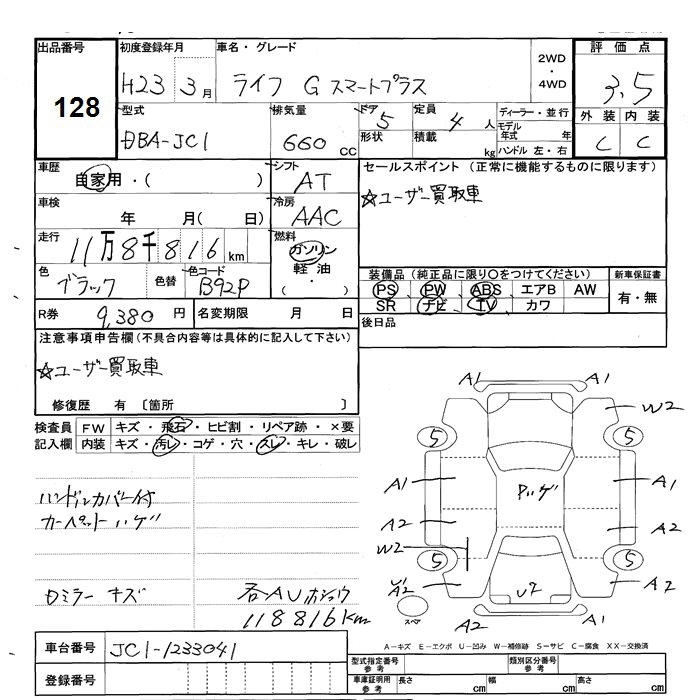 出品番号
128
初度登録年月
H23 3月
車名・グレード
ライフ G スマートプラス
2WD
・
4WD
評価点
3.5
型式
DBA-JC1
排気量
660 CC
ドア 5
形状
定員 4 人
積載 kg
ディーラー・並行
モデル年式 年
ハンドル 左・右
外装 内装
C C
車歴
自家用・( )
シフト
AT
セールスポイント (正常に機能するものに限ります)
☆ユーザー買取車
車検
年 月( 日)
冷房
AAC
走行
11万8千816km
燃料
ガソリン
軽油
・( )
色
ブラック
色替
色コード
B92P
装備品 (純正品に限り〇をつけてください)
PS PW ABS エアB AW
SR ナビ TV カワ
新車保証書
有・無
R券
9,380円
名変期限 月 日
後日品
注意事項申告欄(不具合内容等は具体的に記入して下さい)
☆ユーザー買取車
修復歴 有 〔箇所 〕
検査員記入欄
FW キズ・飛石・ヒビ割・リペア跡・×要
内装 キズ・汚レ・コゲ・穴・スレ・キレ・破レ
ハンドルカバー付
カーペットハゲ
ロミラーキズ
各AUホショウ
118816km
A1 A1
W2
5 5
A1 A1
Pハゲ
A2 A2
W2
5 5
U1
A2 A2
U2
スペア
A2 A1
A-キズ E-エクボ U-凹み W-補修跡 S-サビ C-腐食 XX-交換済
車台番号
JC1-1233041
登録番号
型式指定番号 参考
類別区分番号 参考
車庫証明用 参考
長さ cm 幅 cm 高さ cm